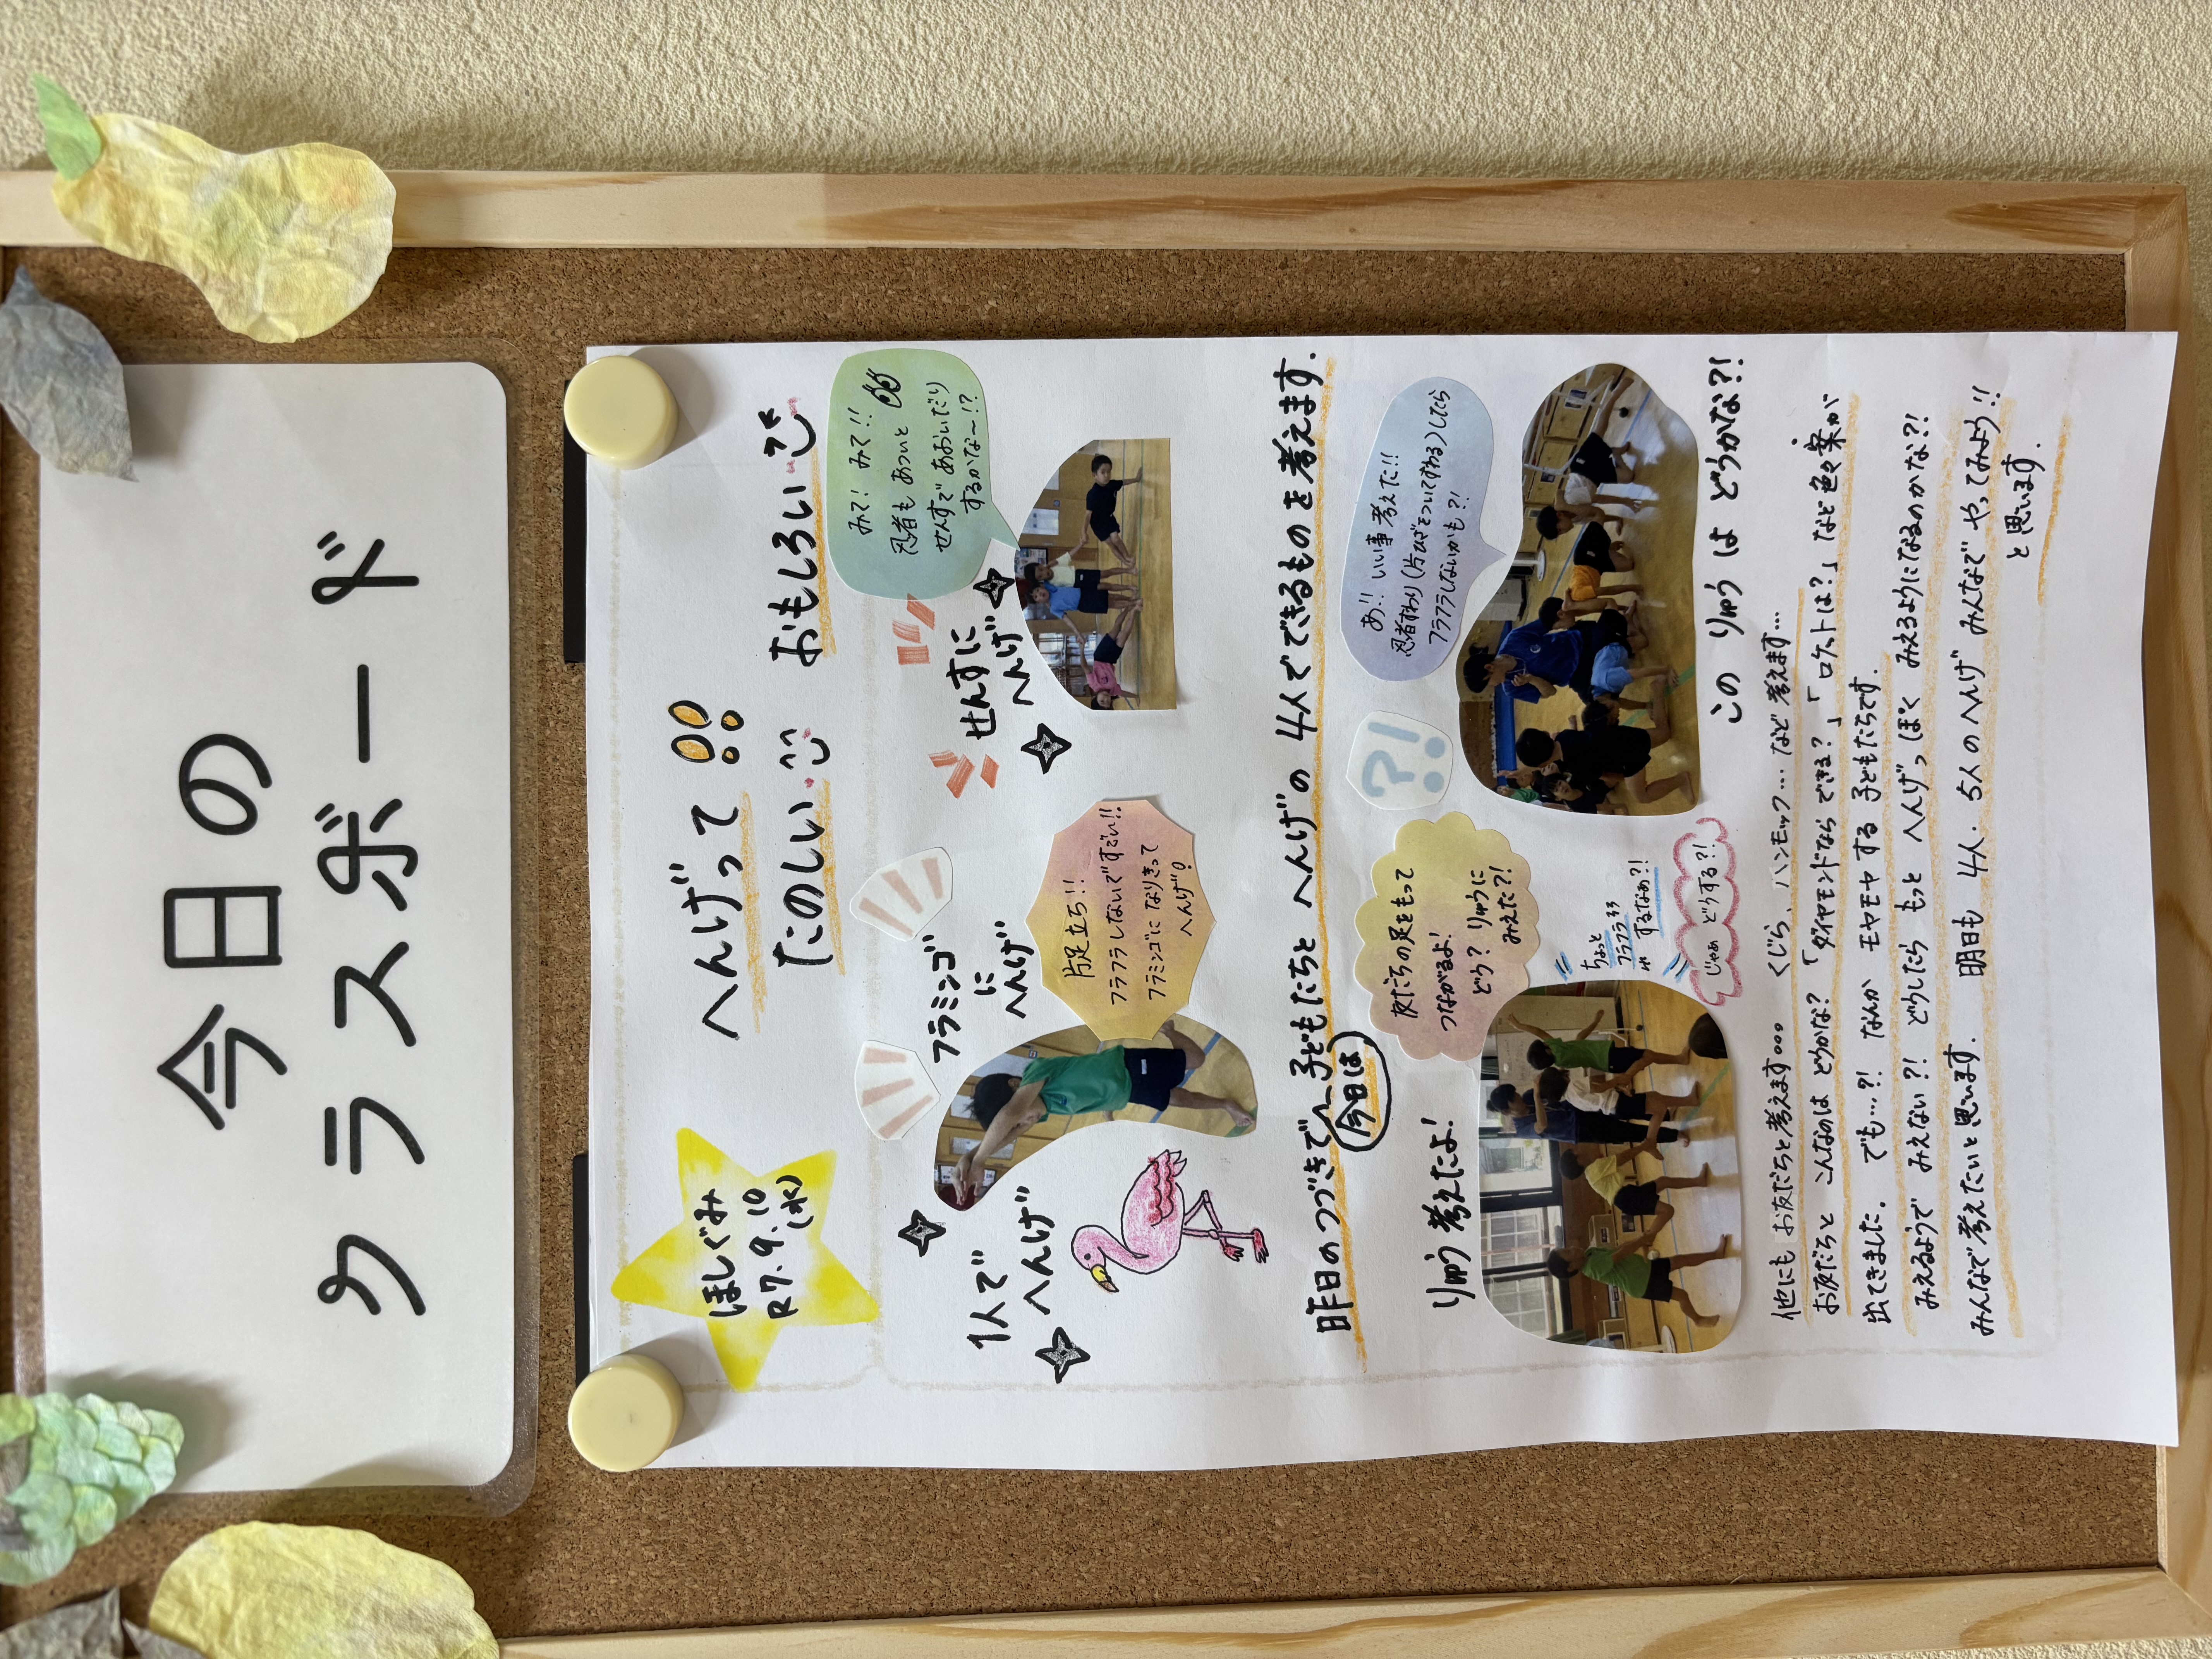 今日の
クラスボード
ほしぐみ
R7.9.10
(水)
へんげって!!
たのしい おもしろい
1人で
へんげ
フラミンゴ
に
へんげ
片足立ち!!
フラフラしないですごい!!
フラミンゴになりきって
へんげ!
せんすに
へんげ
みて! みて!!
忍者も あついと
せんすで あおいだり
するかな〜!?
昨日のつづきで、子どもたちと へんげの 4人でできるものを考えます.
今日は
りゅう 考えたよ!
友だちの足をもって
つながるよ!
どう? りゅうに
みえた?!
?!
あ!! いい事 考えた!!
忍者すわり(片ひざをついてすわる)したら
フラフラしないかも?!
ちょっと
フラフラ
するなぁ?!
じゃぁ どうする?!
この りゅう は どうかな?!
他にも お友だちと考えます... くじら、ハンモック... など 考えます...
お友だちと こんなのは どうかな? 「ダイヤモンドなら できる?」「ロケットは?」など 色々 案が
出てきました. でも...?! なんか モヤモヤ する 子どもたちです.
みえるようで みえない?! どうしたら もっと へんげっぽく みえるようになるのかな?!
みんなで考えたいと思います. 明日も 4人. 5人のへんげ みんなで やってみよう!!
と思います.